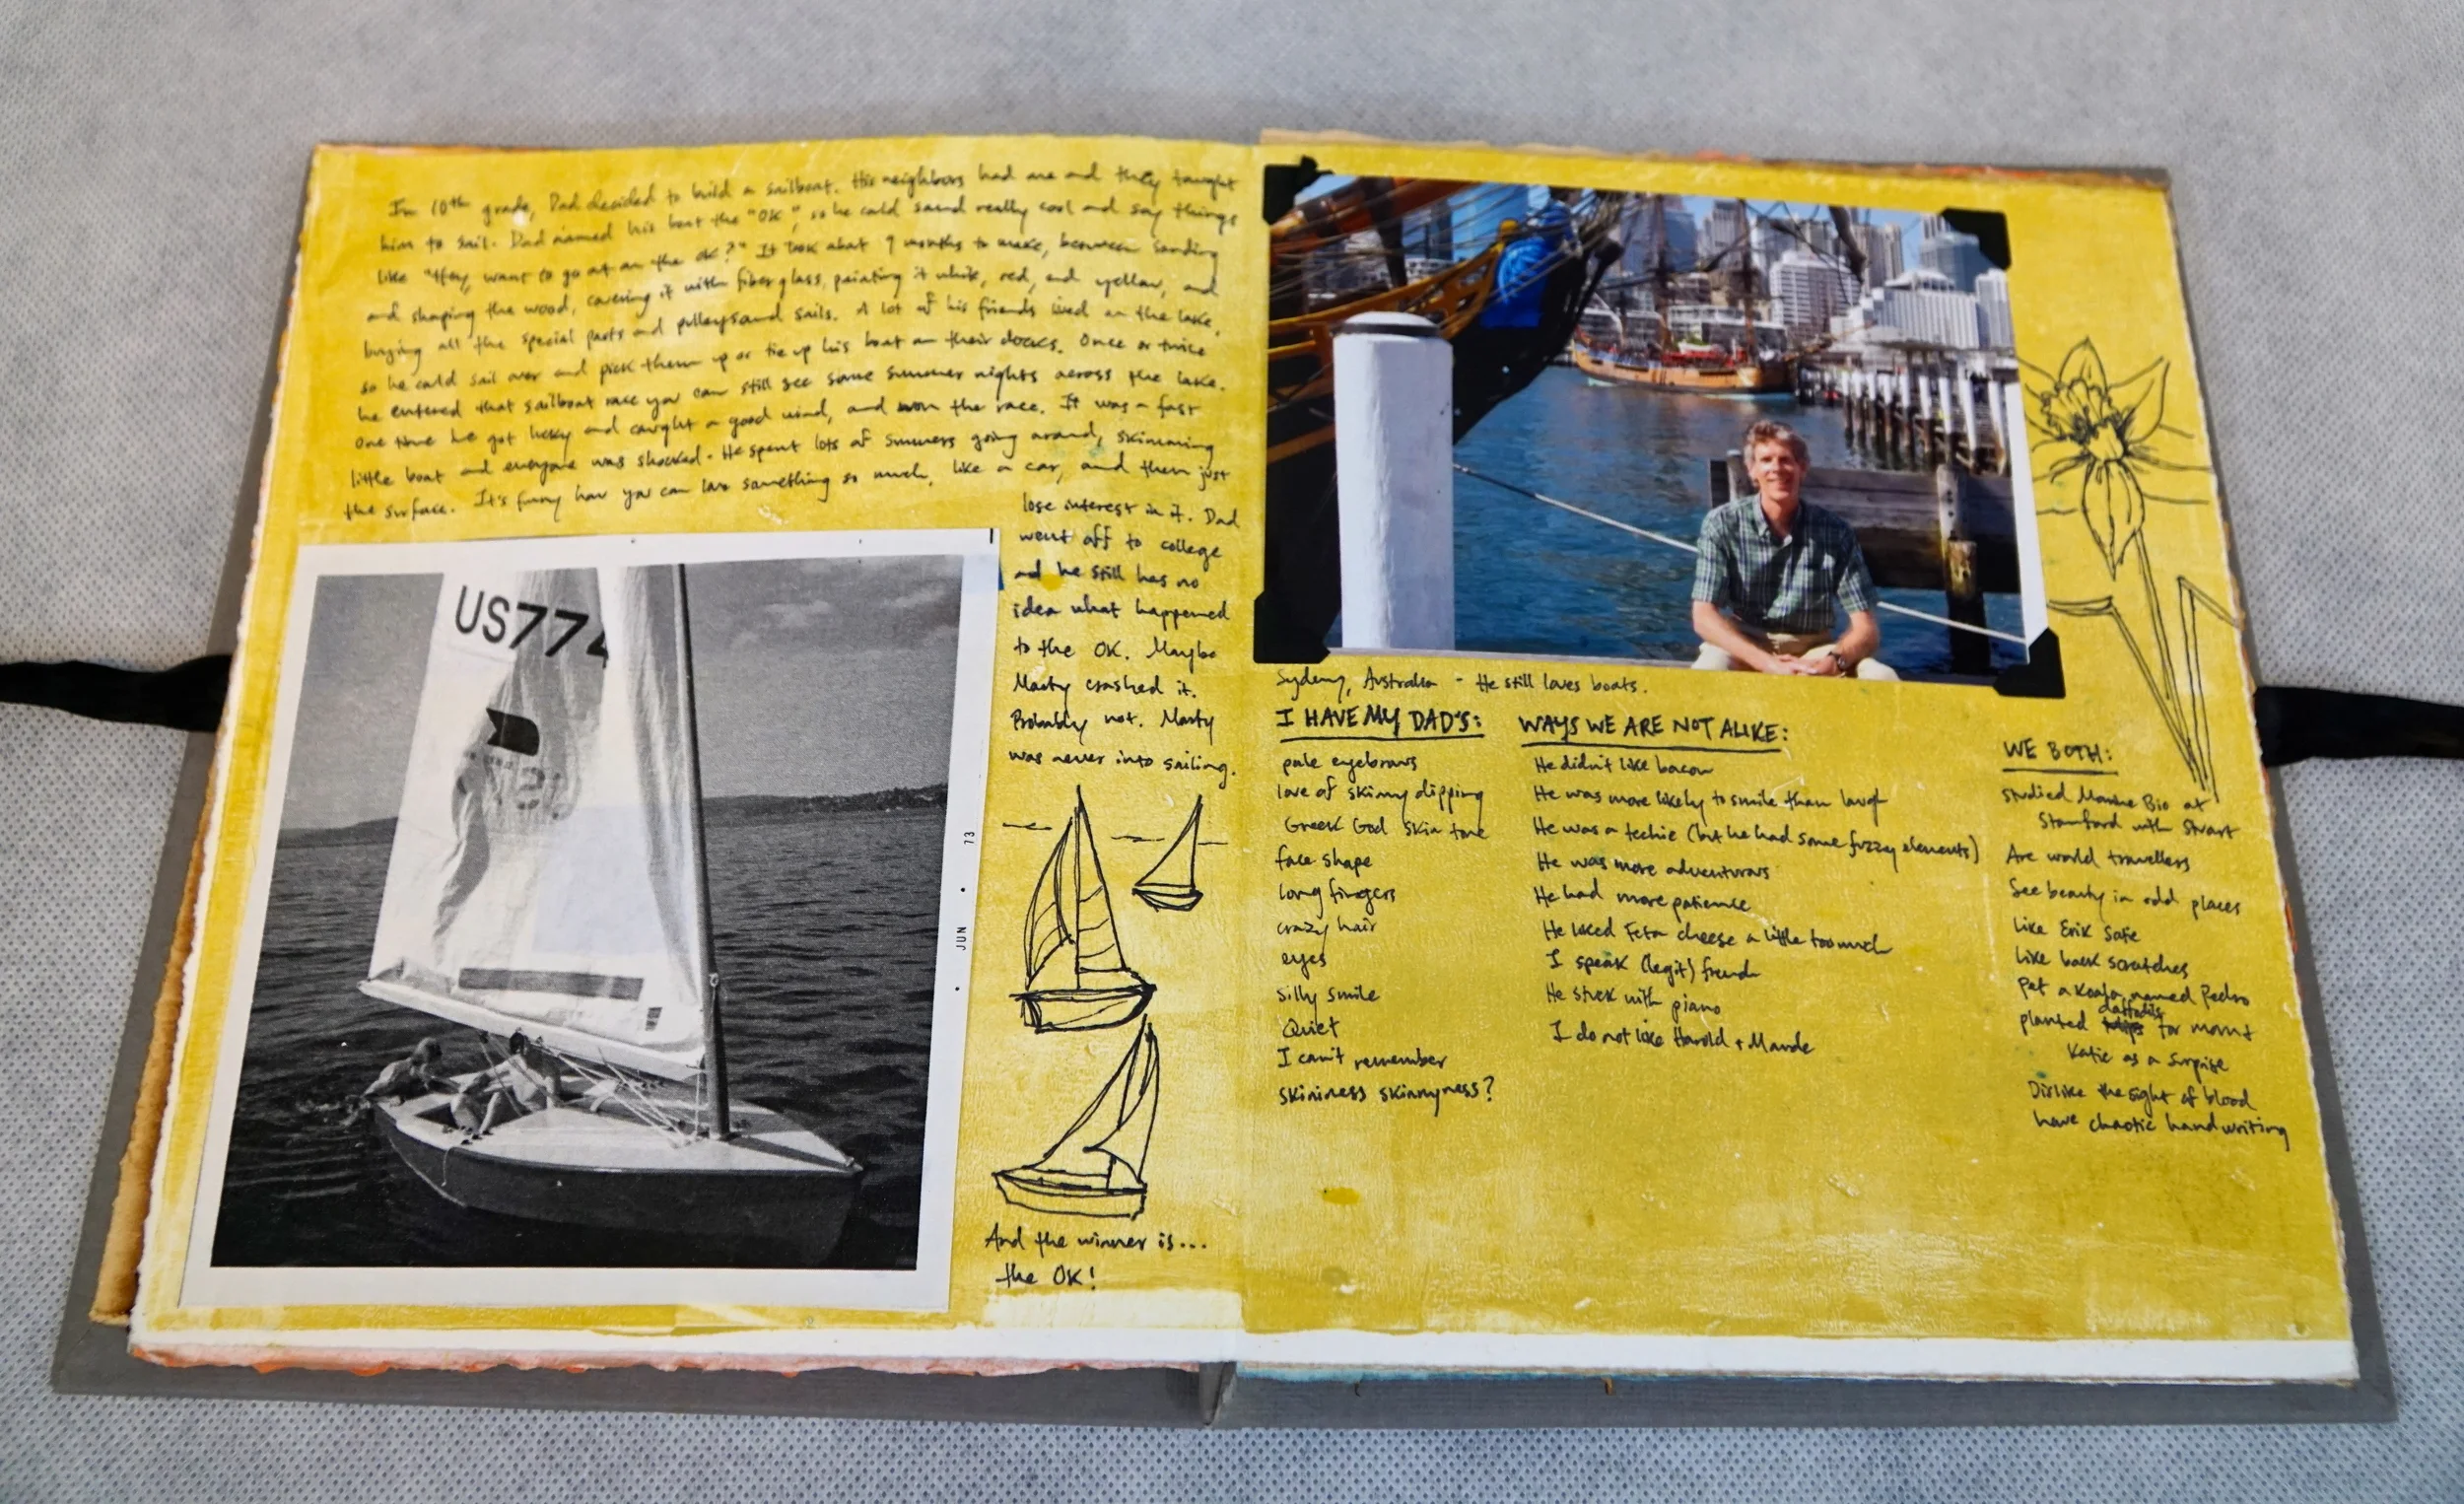 In 10th grade, Dad decided to build a sailboat. His neighbors had one and they taught
him to sail. Dad named his boat the "OK", so he could sound really cool and say things
like "Hey, want to go out on the OK?" It took about 9 months to make, between sanding
and shaping the wood, covering it with fiberglass, painting it white, red, and yellow, and
buying all the special parts and pulleys and sails. A lot of his friends lived on the lake,
so he could sail over and pick them up or tie up his boat on their docks. Once or twice
he entered that sailboat race you can still see some summer nights across the lake.
One time he got lucky and caught a good wind, and won the race. It was a fast
little boat and everyone was shocked. He spent lots of summers going around, skimming
the surface. It's funny how you can love something so much, like a car, and then just
lose interest in it. Dad
went off to college
and he still has no
idea what happened
to the OK. Maybe
Marty crashed it.
Probably not. Marty
was never into sailing.
US774
JUN 73
And the winner is...
the OK!
Sydeny, Australia - He still loves boats.
I HAVE MY DAD'S:
pale eyebrows
love of skinny dipping
Greek God skin tone
face shape
long fingers
crazy hair
eyes
silly smile
Quiet
I can't remember
skininess skinnyness?
WAYS WE ARE NOT ALIKE:
He didn't like bacon
He was more likely to smile than laugh
He was a techie (but he had some fuzzy elements)
He was more adventurous
He had more patience
He liked Feta cheese a little too much
I speak (legit) french
He stuck with piano
I do not like Harold + Maude
WE BOTH:
studied Marine Bio at
Stanford with Stuart
Are world travellers
See beauty in odd places
Like Erik Satie
Like back scratches
Pet a koala named Pedro
daffodils
planted tulips for mom +
Katie as a surprise
Dislike the sight of blood
have chaotic handwriting